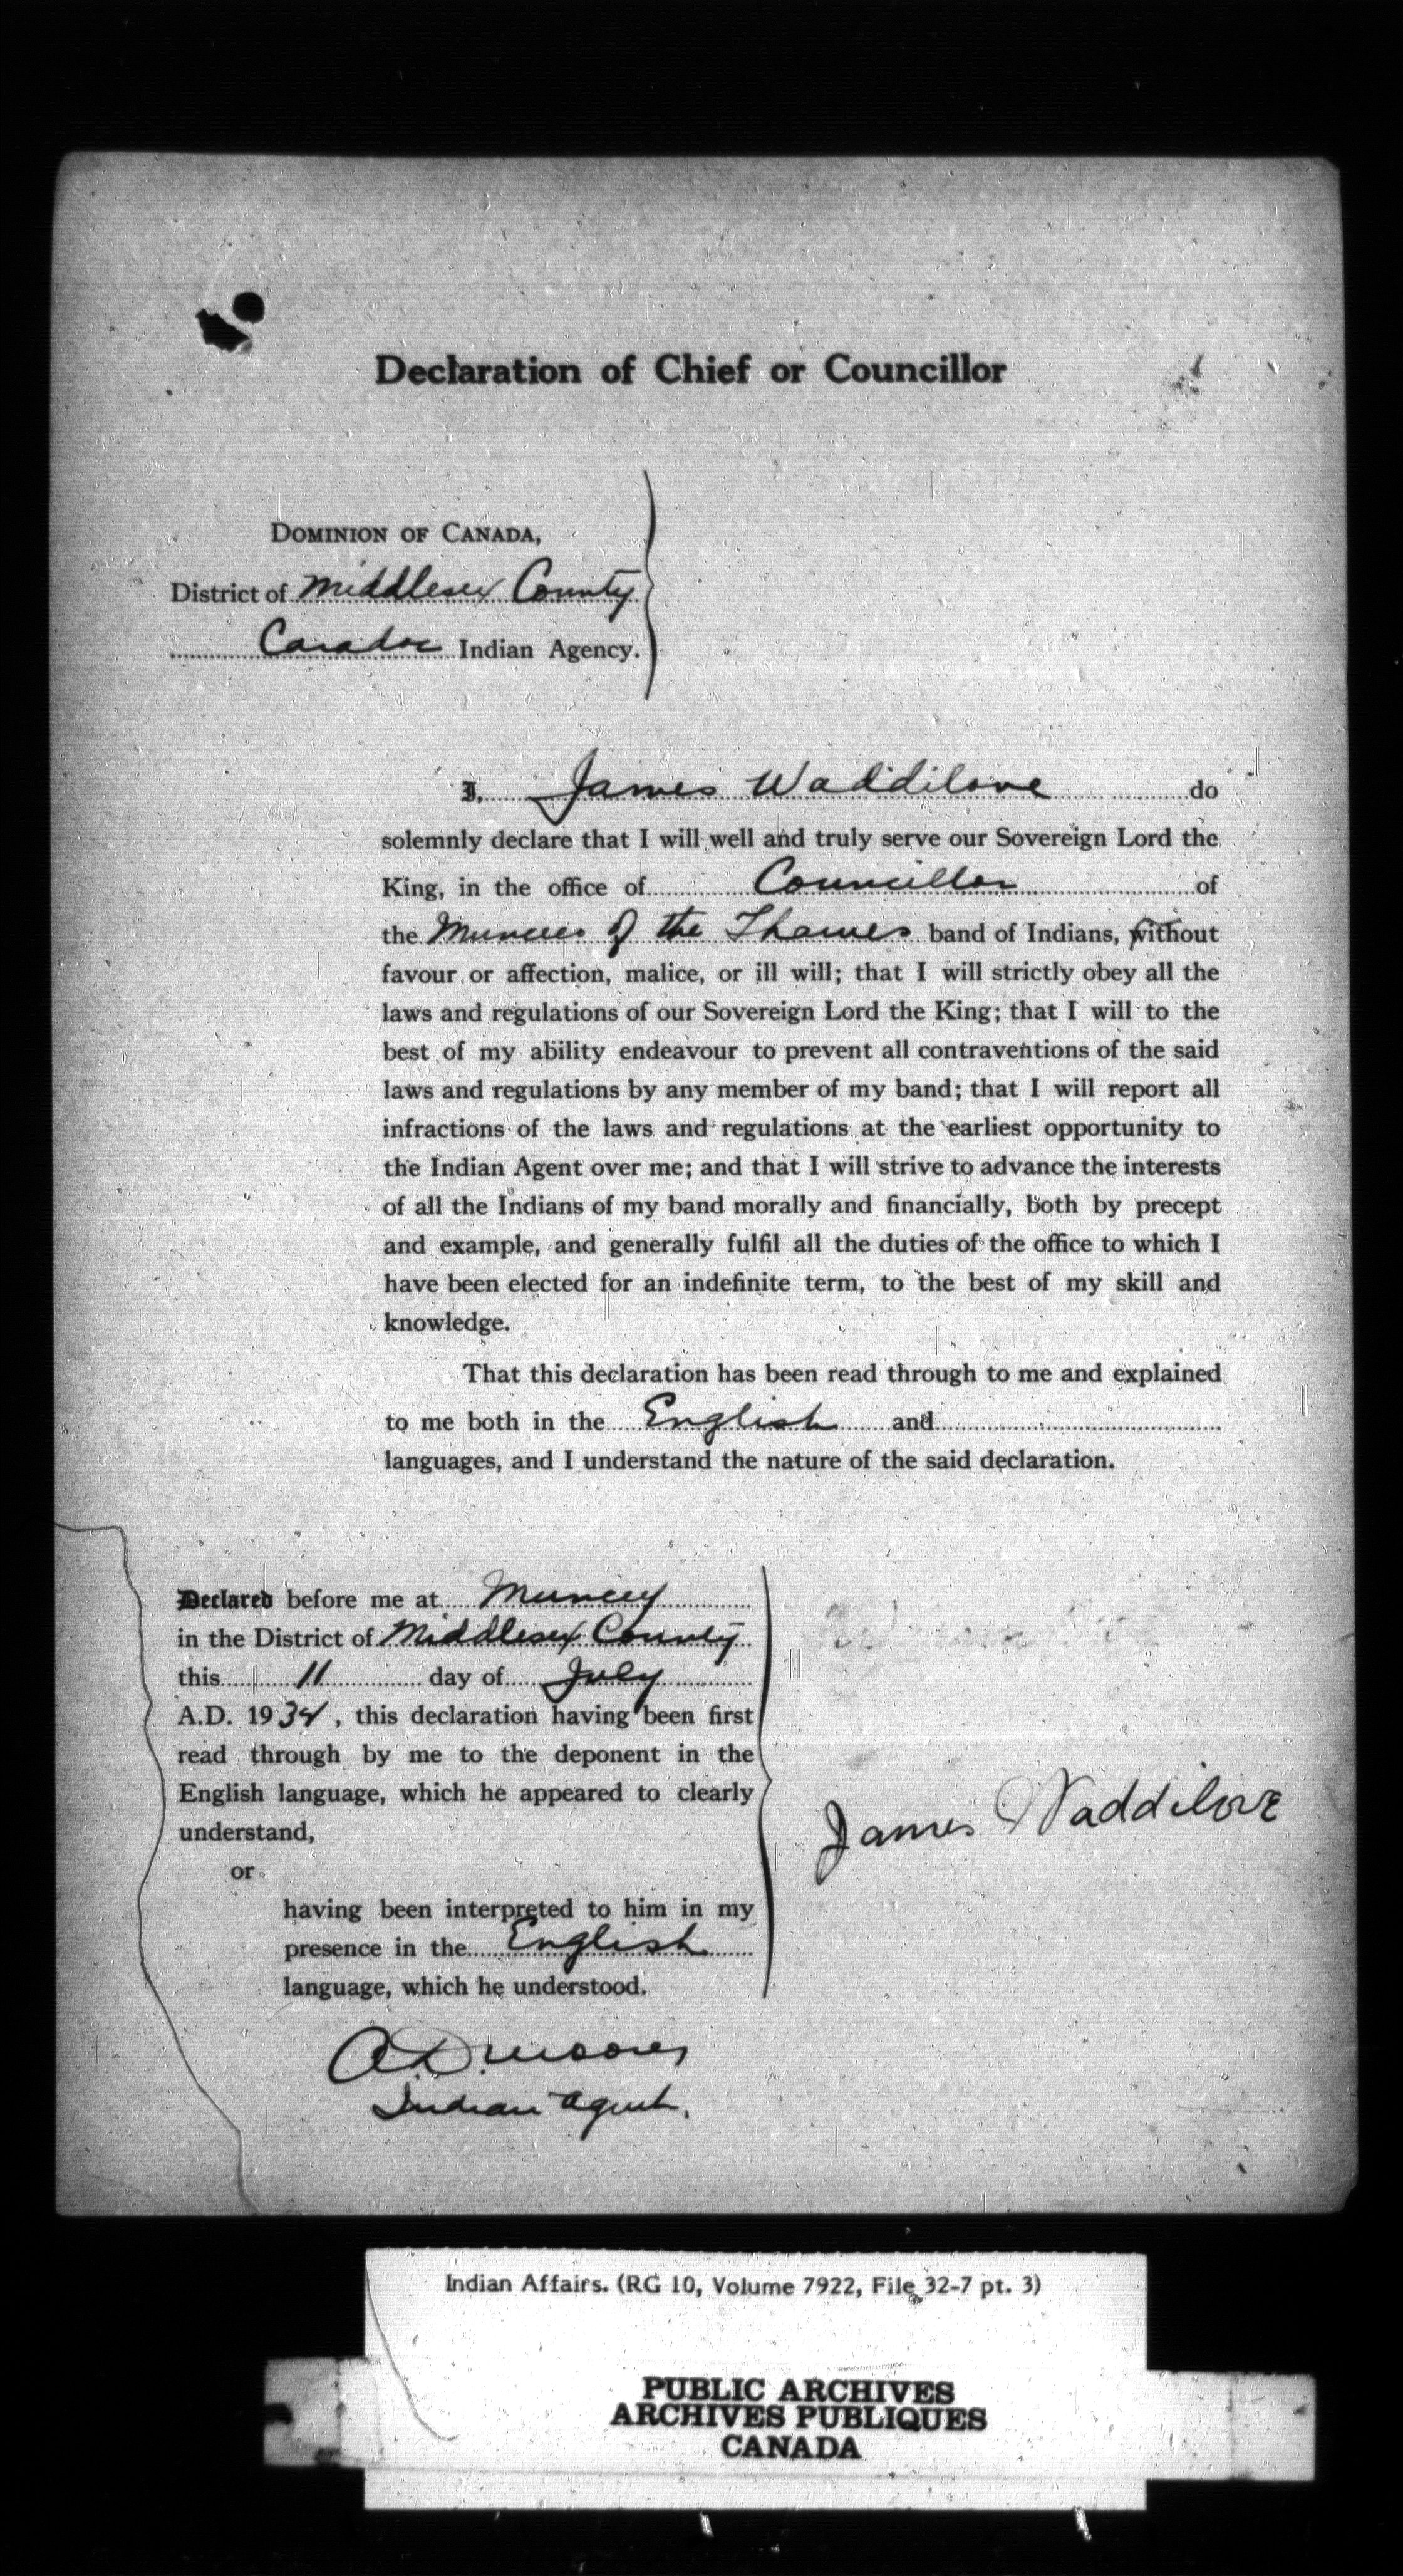 Declaration of Chief or Councillor
DOMINION OF CANADA,
District of Middlesex County
Caradoc Indian Agency.
I, James Waddilove do
solemnly declare that I will well and truly serve our Sovereign Lord the
King, in the office of Councillor of
the Muncees of the Thames band of Indians, without
favour or affection, malice, or ill will; that I will strictly obey all the
laws and regulations of our Sovereign Lord the King; that I will to the
best of my ability endeavour to prevent all contraventions of the said
laws and regulations by any member of my band; that I will report all
infractions of the laws and regulations at the earliest opportunity to
the Indian Agent over me; and that I will strive to advance the interests
of all the Indians of my band morally and financially, both by precept
and example, and generally fulfil all the duties of the office to which I
have been elected for an indefinite term, to the best of my skill and
knowledge.
That this declaration has been read through to me and explained
to me both in the English and
languages, and I understand the nature of the said declaration.
Declared before me at Muncey
in the District of Middlesex County
this 11 day of July
A.D. 1934, this declaration having been first
read through by me to the deponent in the
English language, which he appeared to clearly
understand,
or
having been interpreted to him in my
presence in the English
language, which he understood.
James Waddilove
A.D. Moore
Indian Agent.
Indian Affairs. (RG 10, Volume 7922, File 32-7 pt. 3)
PUBLIC ARCHIVES
ARCHIVES PUBLIQUES
CANADA